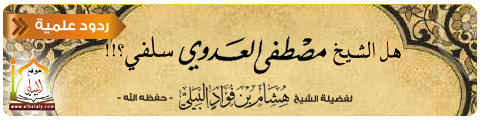 ردود علمية
هل الشيخ مصطفى العدوي سلفي؟!!
لفضيلة الشيخ هشام بن فؤاد البيلي - حفظه الله -
موقع
البيلي
www.elbeialy.com